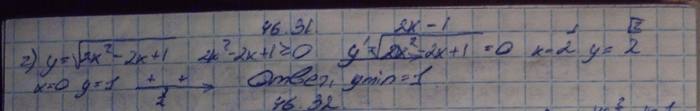 46.31
2) y=√2x²-2x+1 2x²-2x+1≥0 y'=2x-1/√2x²-2x+1=0 x=1/2 y=√2/2
x=0 y=1 + + 1/2 Ответ, ymin=1
46.32